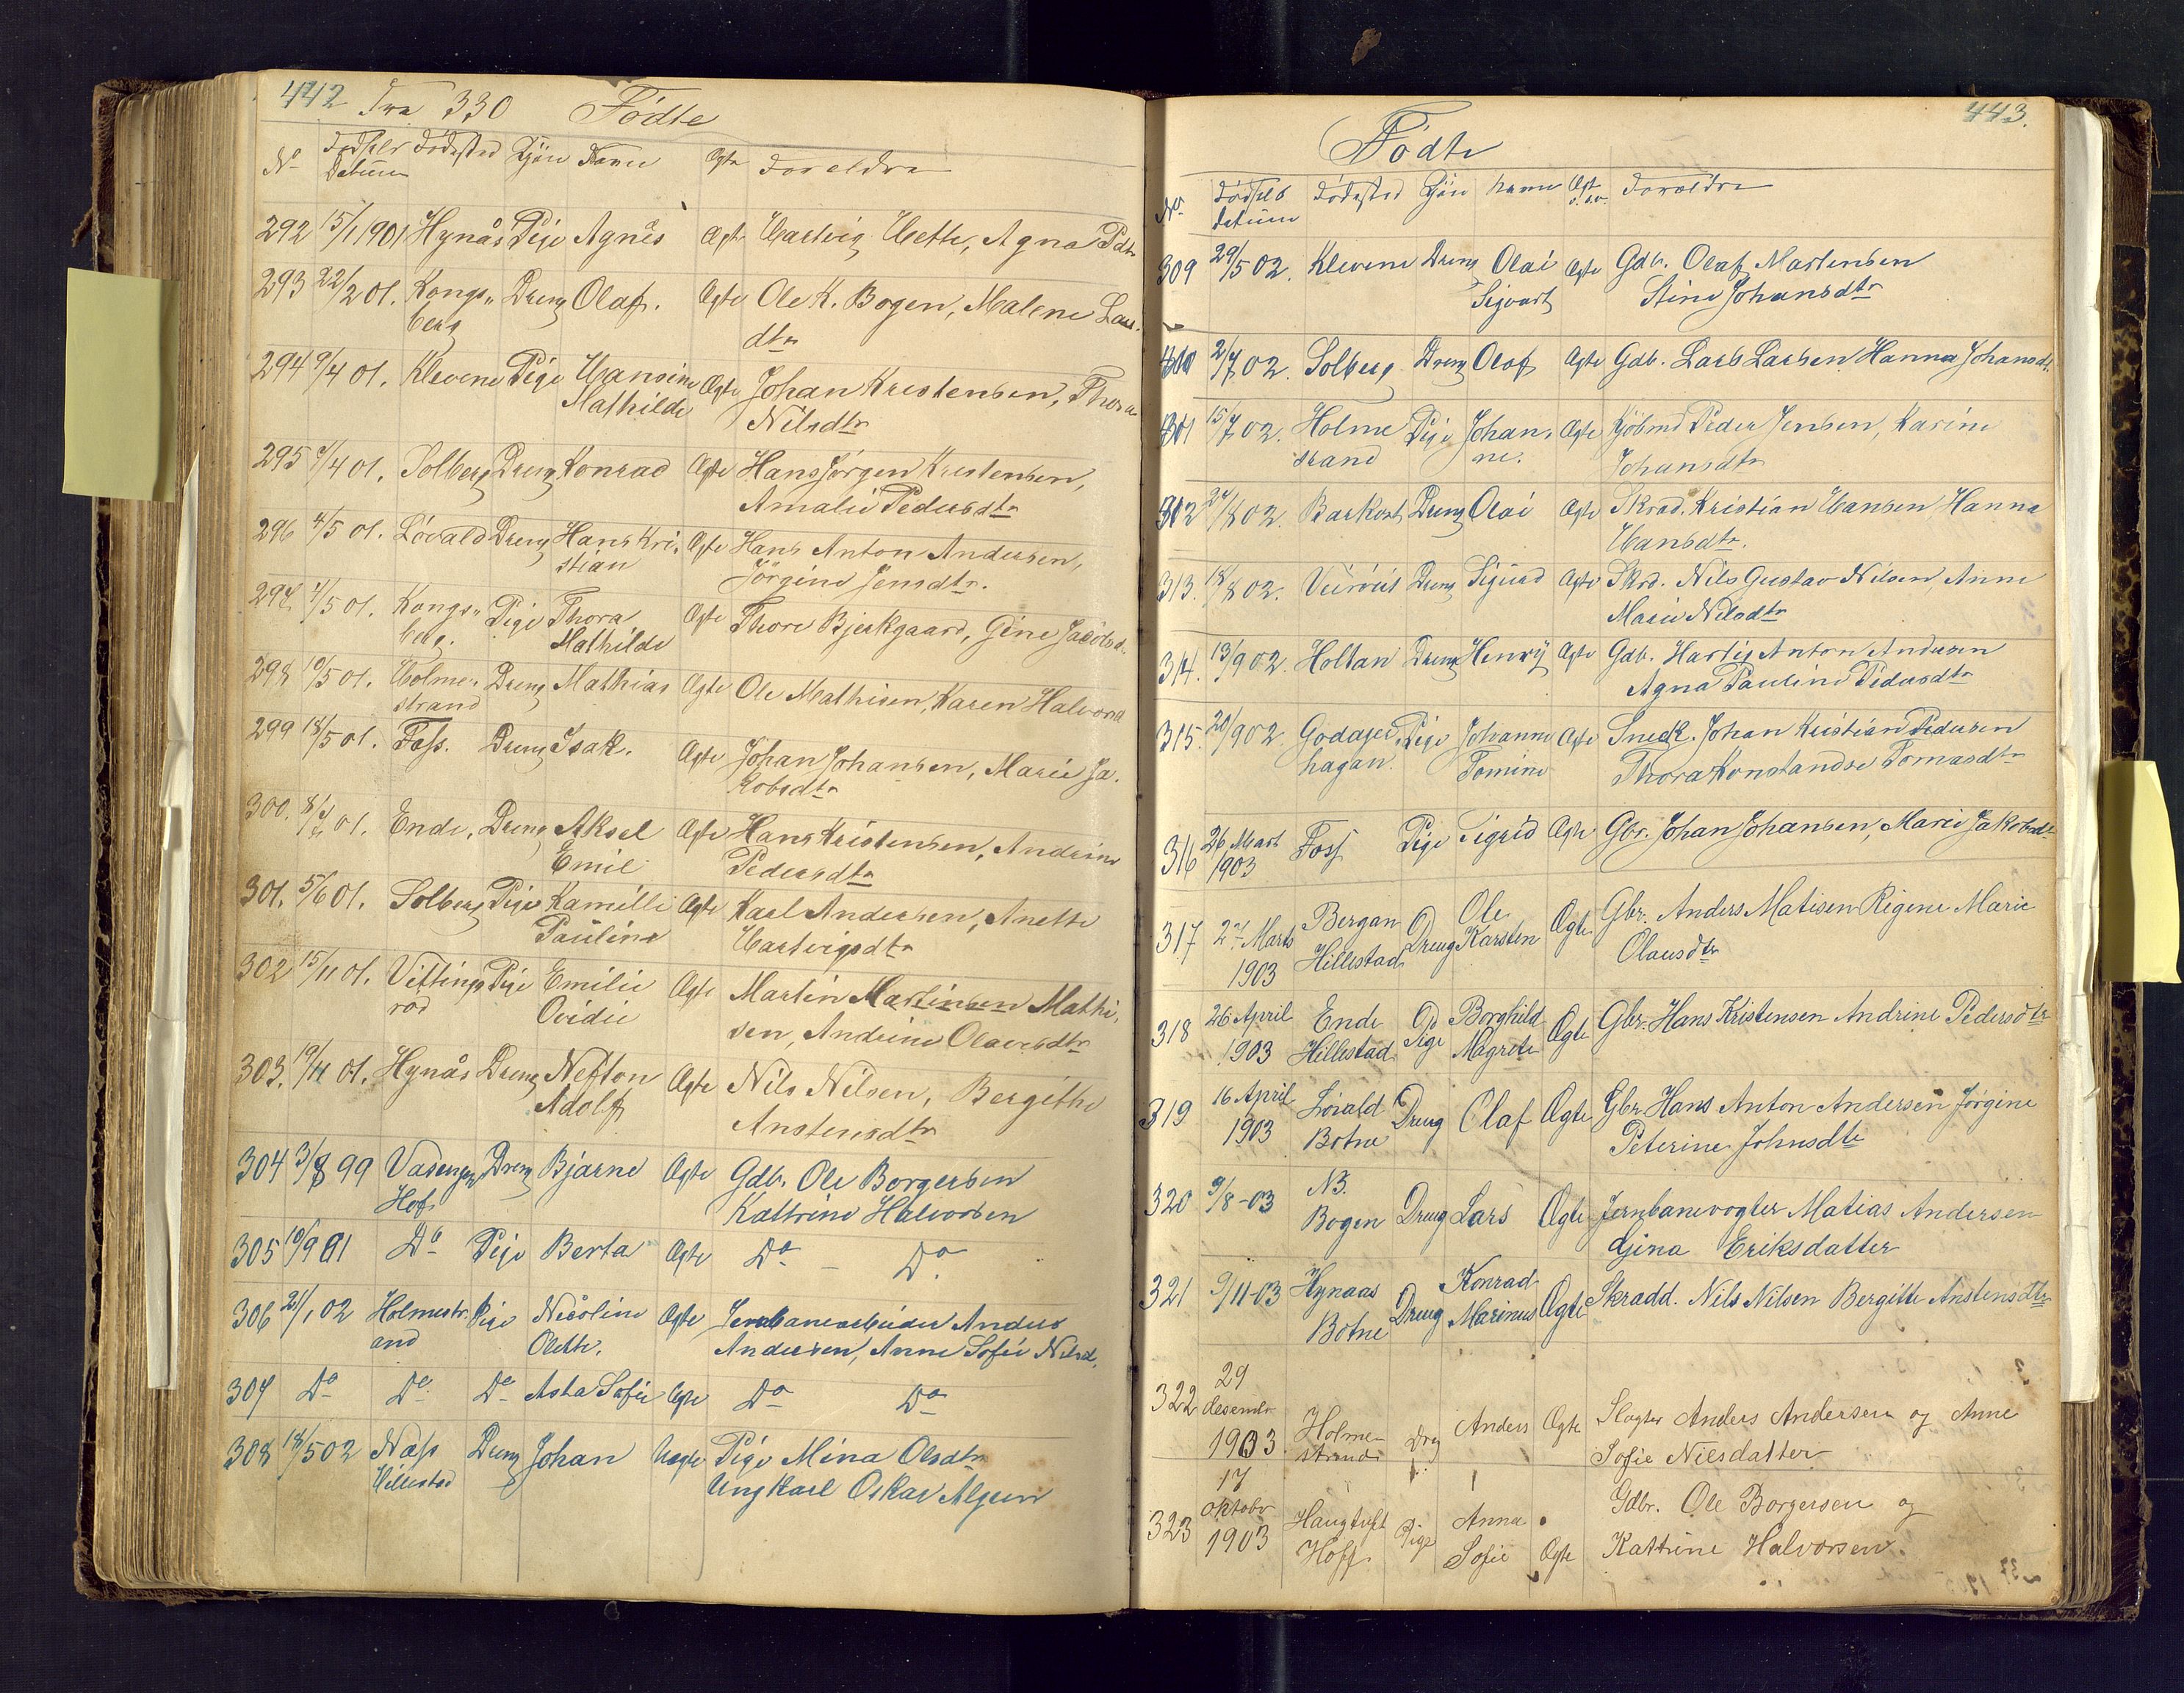 442 Fra 330 Födte
No Födsels Datum Födested Kjön Navn Ægte Foreldre
292 15/1 1901 Hynås Pige Agnes Ægte Hartvig Hette, Agna Pdtr
293 22/2 01. Kongs„ Dreng Olaf. Ægte Ole K. Bogen, Malene Lau.
berg dtr
294 9/4 01. Klevene Pige Hansine Ægte Johan Kristensen, Thora
Mathilde Nilsdtr
295 9/4 01. Solberg Dreng Konrad Ægte Hans Jörgen Kristensen,
Amalie Pedersdtr
296 4/5 01. Lövald Dreng Hans Kri. Ægte Hans Anton Andersen,
stian Jörgine Jensdtr.
297 4/5 01. Kongs„ Pige Thora Ægte Thore Bjerkgaard, Gine Jacobsd.
berg. Mathilde
298 10/5 01. Holme. Dreng Mathias Ægte Ole Mathisen, Karen Halvorsd
strand
299 18/5 01. Foss. Dreng Isak. Ægte Johan Johansen, Marie Ja.
kobsdtr
300. 8/7 01. Ende, Dreng Aksel Ægte Hans Kristensen, Andrine
Emil Pedersdtr
301. 5/6 01. Solberg Pige Kamilli Ægte Karl Andersen, Anette
Pauline Hartvigsdtr
302 15/11 01. Vittings Pige Emilie Ægte Martin Martinsen Mathi.
rød Ovidie sen, Andrine Olavesdtr
303. 19/11 01. Hynås Dreng Nefton Ægte Nils Nilsen, Bergithe
Adolf Anstensdtr
304 3/8 99 Vasengen Dreng Bjarne Ægte Gdb. Ole Borgersen
Hof Kattrine Halvorsen
305 10/9 01 Do Pige Berta Ægte Do – Do.
306 21/1 02 Holmestr. Pige Nicoline Ægte Jernbanearbeider Anders
and Olette. Andersen, Anne Sofie Nilsd.
307 Do Do. Do Asta Sofie Ægte Do Do
308 18/5 02 Næss Dreng Johan Uægte Pige Mina Olsdtr
Hillestad Ungkarl Oskar Algren
443.
Födte
No Födsels datum Födested Kjön Navn Ægt Foreldre
309 29/5 02. Klevene Dreng Olai Ægte Gdb. Olaf Martensen
Sigvart Stine Johansdtr
310 2/7 02. Solberg Dreng Olaf Ægte Gdb. Lars Larsen Hanna Johansdt.
311 15/7 02. Holme Pige Johan. Ægte Kjöbmd Peder Jensen, Karine
strand ne. Johansdtr
312 24/8 02. Barkost Dreng Olai Ægte Skrad. Kristian Hansen, Hanna
Hansdtr.
313. 18/8 02. Dreng Sigurd Ægte Skrd. Nils Gustav Nilsen, Anne
Marie Nilsdtr
314. 13/9 02. Holtan Dreng Henrÿ Ægte Gdb. Hartig Anton Andersen
Agna Pauline Pedersdtr
315. 20/9 02. Godager Pige Johanne Ægte Snedk. Johan Kristian Pedersen
hagan. Tomine Thora Konstandse Tomasdtr
316 26 Mart Foss Pige Sigrid Ægte Gbr. Johan Johansen, Marie Jakobsdtr
1903
317 2n Marts Bergan Dreng Ole Ægte Gbr. Anders Matisen Regine Marie
1903 Hillestad Karsten Olausdtr
318 26 April Ende Pige Borghild Ægte Gbr. Hans Kristensen Andrine Pedersdtr
1903 Hillestad Magrete
319 16 April Lövald Dreng Olaf Ægte Gbr. Hans Anton Andersen Jörgine
1903 Botne Peterine Johnsdtr
320 9/8-03 NB. Dreng Lars Ægte Jernbanevogter Matias Andersen
Bogen Gina Eriksdatter
321 9/11-03 Hynaas Dreng Konrad Ægte Skradd. Nils Nilsen Bergitte Anstensdtr
Botne Marinus
322 29 desembr 1903 Holme- Drg Anders Ægte Slagter Anders Andersen og Anne
strand Sofie Nilsdatter
323 17 oktobr 1903 Haugtuft Pige Anna Gdbr. Ole Borgersen og
Hoff. Sofie Ægte Kattrine Halvorsen.